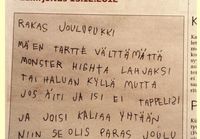 RAKAS JOULUPUKKI
MÄ EN TARTTE VÄLTTÄMÄTTÄ
MONSTER HIGHTA LAHJAKSI
TAI HALUAN KYLLÄ MUTTA
JOS ÄITI JA ISI EI TAPPELISI
JA JOISI KALIAA YHTÄÄN
NIIN SE OLIS PARAS JOULU